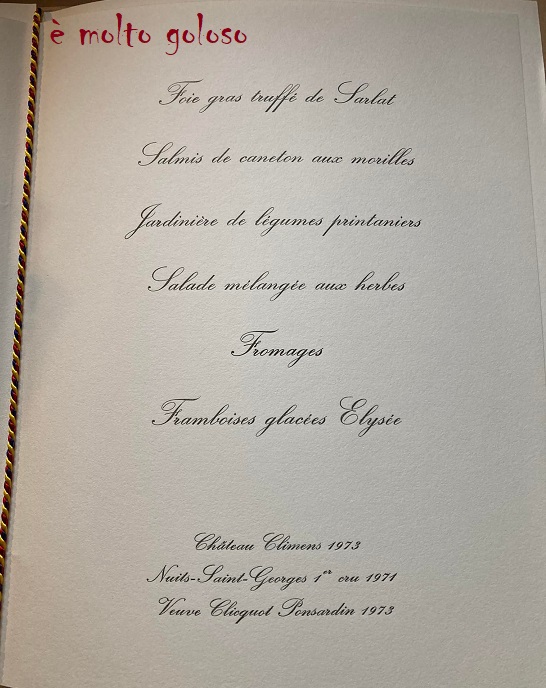 è molto goloso
Foie gras truffé de Sarlat
Salmis de caneton aux morilles
Jardinière de légumes printaniers
Salade mélangée aux herbes
Fromages
Framboises glacées Elysée
Château Climens 1973
Nuits-Saint-Georges 1er cru 1971
Veuve Clicquot Ponsardin 1973